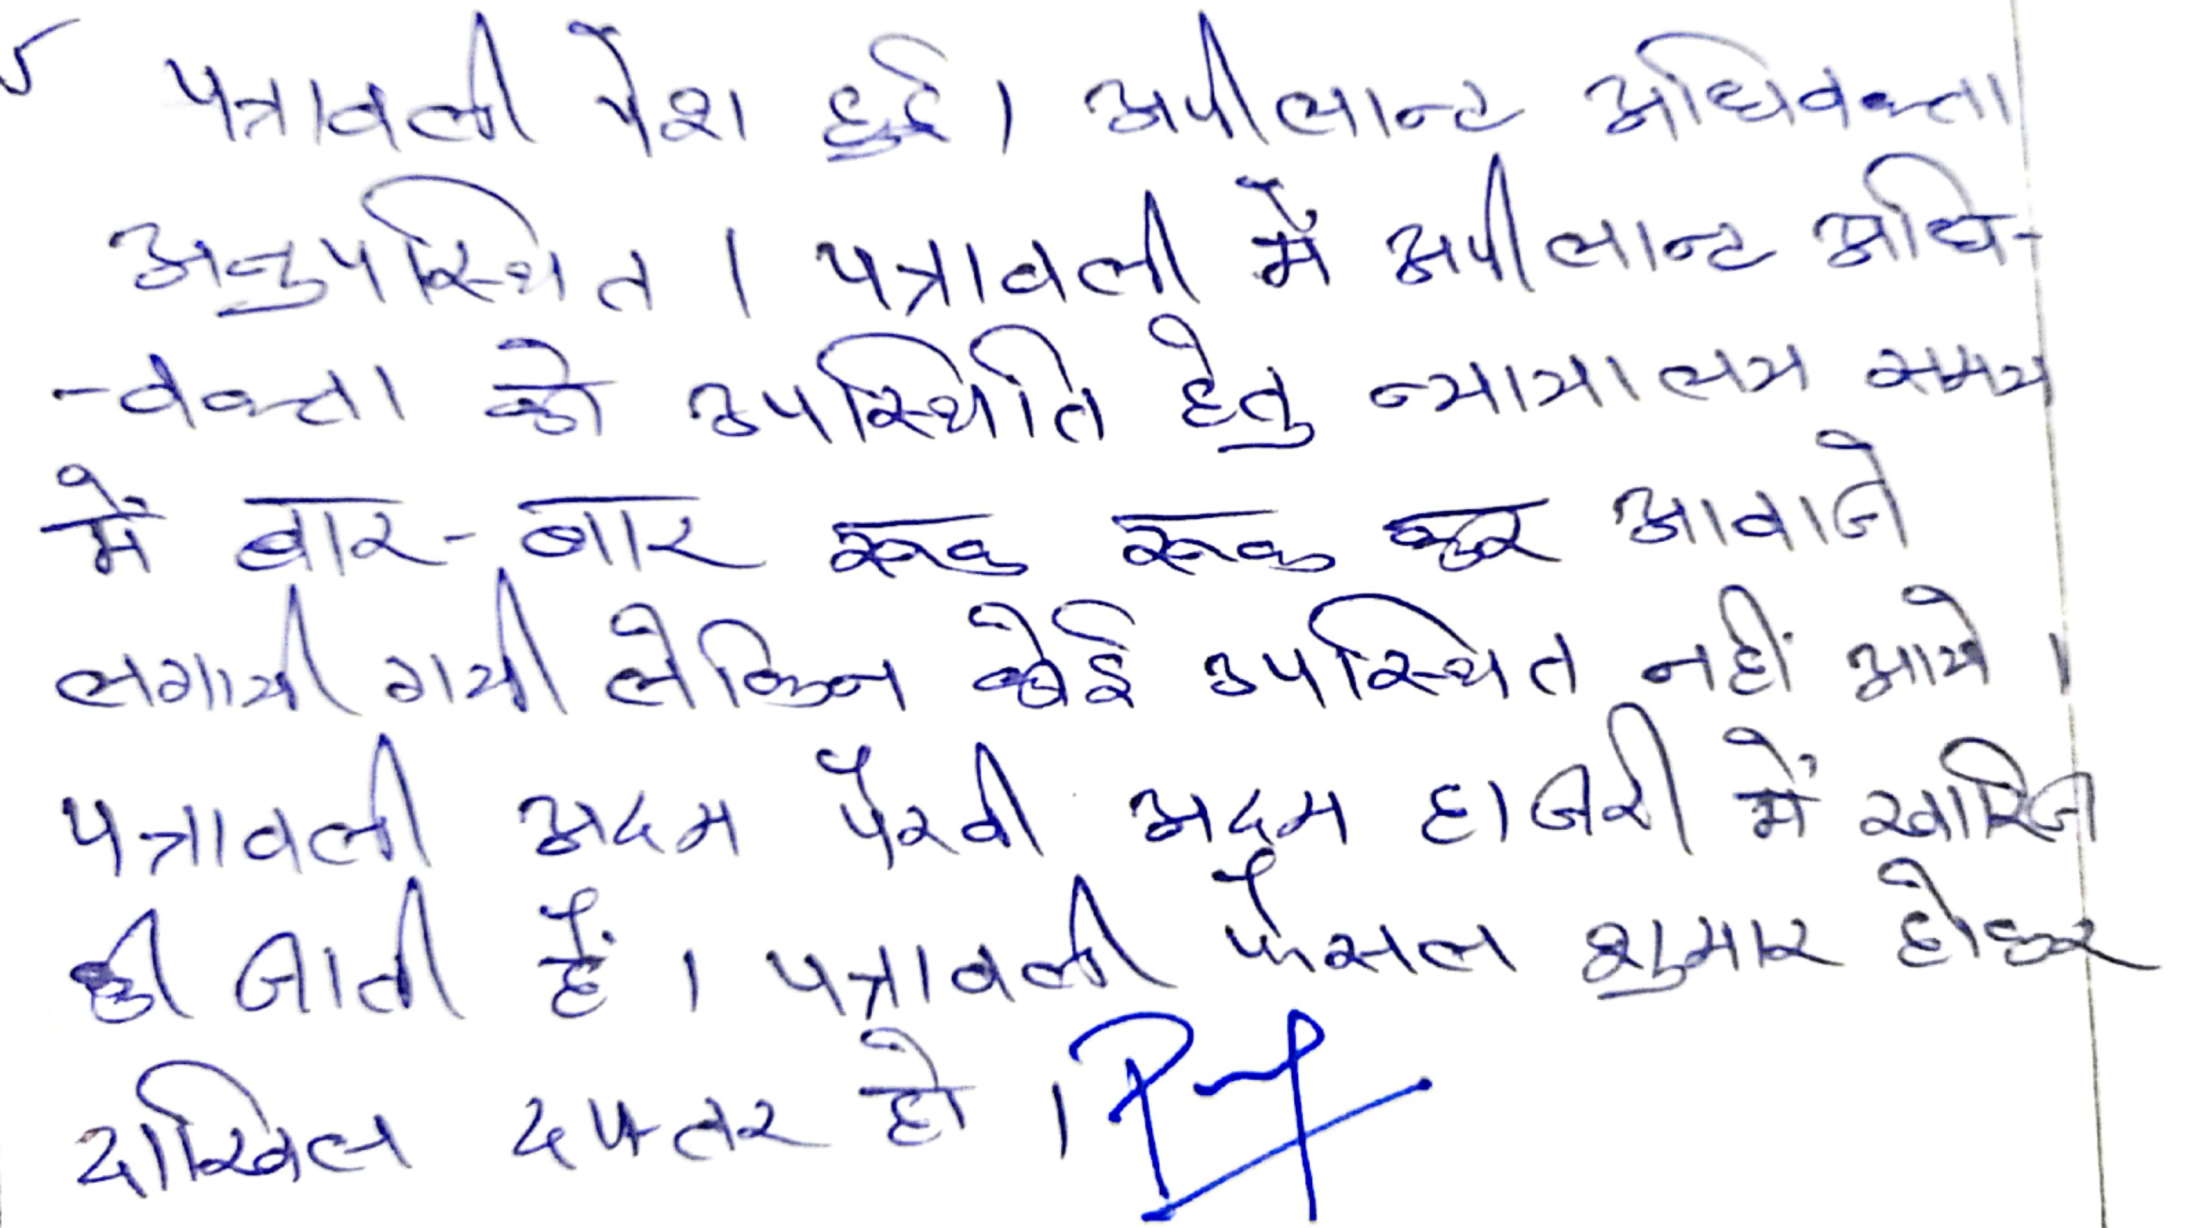 पत्रावली पेश हुई। अपीलान्ट अधिवक्ता
अनुपस्थित। पत्रावली में अपीलान्ट अधि-
-वक्ता को उपस्थिति हेतु न्यायालय समय
में बार-बार रूक रूक कर आवाजे
लगायी गयी लेकिन कोई उपस्थित नहीं आये।
पत्रावली अदम पैरवी अदम हाजरी में खारिज
की जाती हैं। पत्रावली फैसल शुमार होकर
दाखिल दफ्तर हो।